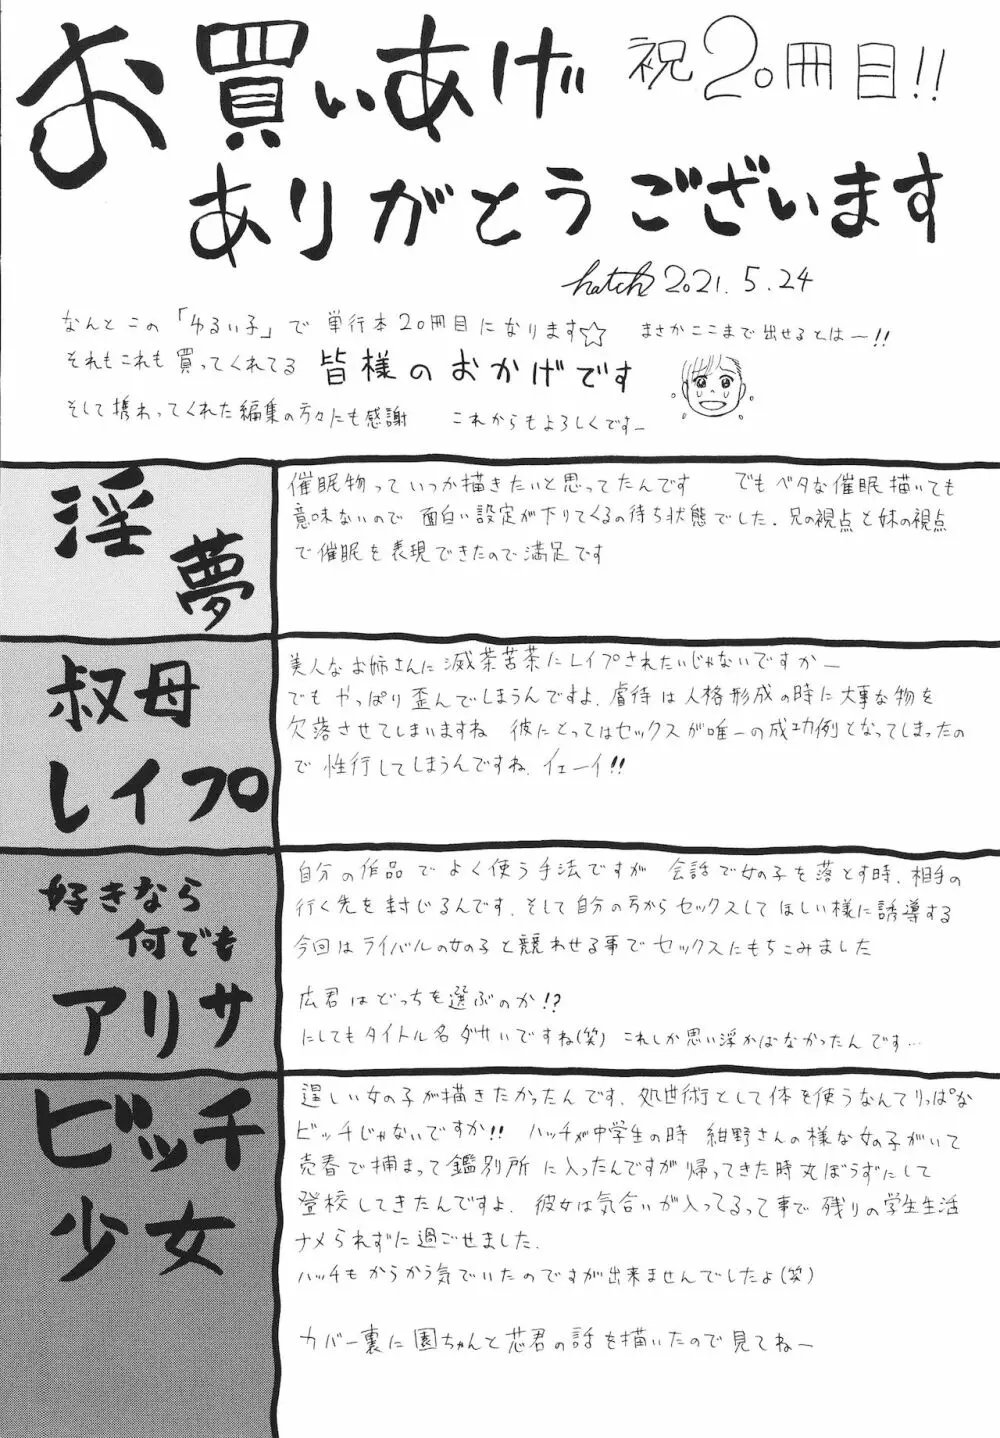 お買いあげ 祝20冊目!!
ありがとうございます
hatch 2021.5.24
なんとこの「ゆるい子」で 単行本20冊目になります☆ まさかここまで出せるとはー!!
それもこれも買ってくれてる 皆様のおかげです
そして携わってくれた編集の方々にも感謝 これからもよろしくですー
淫夢
催眠物っていつか描きたいと思ってたんです でもベタな催眠描いても
意味ないので 面白い設定が下りてくるの待ち状態でした.兄の視点と妹の視点
で催眠を表現できたので満足です
叔母
レイプ
美人なお姉さんに滅茶苦茶にレイプされたいじゃないですかー
でもやっぱり歪んでしまうんですよ.虐待は人格形成の時に大事な物を
欠落させてしまいますね 彼にとってはセックスが唯一の成功例となってしまったの
で性行してしまうんですね.イェーイ!!
好きなら
何でも
アリサ
自分の作品でよく使う手法ですが 会話で女の子を落とす時.相手の
行く先を封じるんです.そして自分の方からセックスしてほしい様に誘導する
今回はライバルの女の子と競わせる事でセックスにもちこみました
広君はどっちを選ぶのか!?
にしてもタイトル名ダサいですね(笑) これしか思い浮かばなかったんです…
ビッチ
少女
逞しい女の子が描きたかったんです.処世術として体を使うなんてりっぱな
ビッチじゃないですか!! ハッチが中学生の時 紺野さんの様な女の子がいて
売春で捕まって鑑別所に入ったんですが帰ってきた時丸ぼうずにして
登校してきたんですよ.彼女は気合いが入ってるって事で残りの学生生活
ナメられずに過ごせました.
ハッチもからかう気でいたのですが出来ませんでしたよ(笑)
カバー裏に園ちゃんと芯君の話を描いたので見てねー